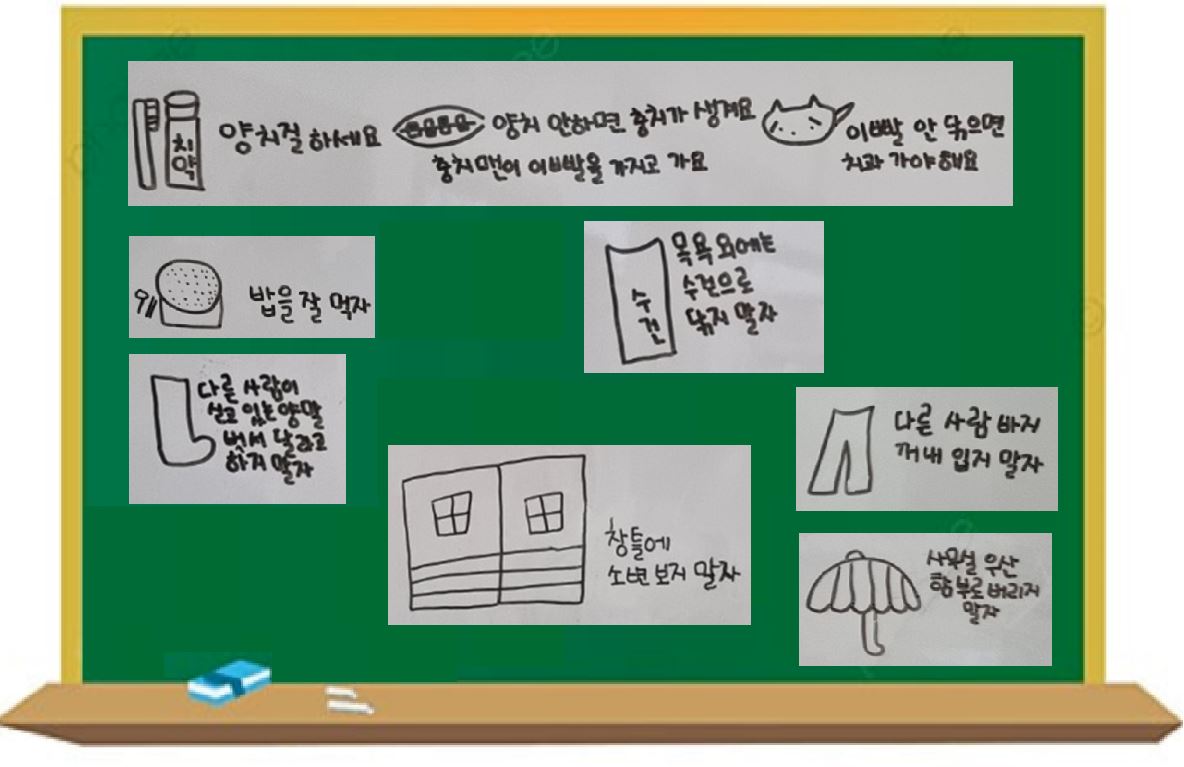 치약
양치질 하세요
양치 안하면 충치가 생겨요
충치맨이 이빨을 가지고 가요
이빨 안 닦으면
치과 가야 해요
밥을 잘 먹자
수건
목욕 외에는
수건으로
닦지 말자
다른 사람이
신고 있는 양말
벗서 달라고
하지 말자
다른 사람 바지
꺼내 입지 말자
창틀에
소변 보지 말자
사무실 우산
함부로 버리지
말자